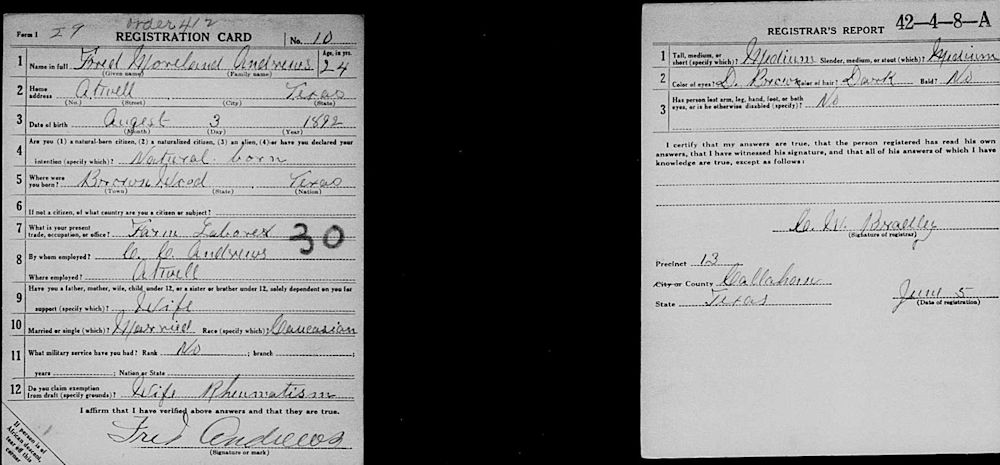 Form 1 I 9 order 412
REGISTRATION CARD No. 10
1 Name in full Fred Moreland Andrews Age, in yrs. 24
(Given name) (Family name)
2 Home address Atwell Texas
(No.) (Street) (City) (State)
3 Date of birth Augest 3 1892
(Month) (Day) (Year)
4 Are you (1) a natural-born citizen, (2) a naturalized citizen, (3) an alien, (4) or have you declared your
intention (specify which)? Natural born
5 Where were you born? Brown Wood Texas
(Town) (State) (Nation)
6 If not a citizen, of what country are you a citizen or subject?
7 What is your present trade, occupation, or office? Farm Laborer 30
8 By whom employed? C. C. Andrews
Where employed? Atwell
9 Have you a father, mother, wife, child under 12, or a sister or brother under 12, solely dependent on you for
support (specify which)? Wife
10 Married or single (which)? Married Race (specify which)? Caucasian
11 What military service have you had? Rank No ; branch ;
years ; Nation or State
12 Do you claim exemption from draft (specify grounds)? Wife Rheumatism
I affirm that I have verified above answers and that they are true.
Fred Andrews
(Signature or mark)
If person is of
African descent,
tear off this
corner
REGISTRAR'S REPORT 42-4-8-A
1 Tall, medium, or short (specify which)? Medium Slender, medium, or stout (which)? Medium
2 Color of eyes? D. Brown Color of hair? Dark Bald? No
3 Has person lost arm, leg, hand, foot, or both
eyes, or is he otherwise disabled (specify)? No
I certify that my answers are true, that the person registered has read his own
answers, that I have witnessed his signature, and that all of his answers of which I have
knowledge are true, except as follows:
C. W. Bradley
(Signature of registrar)
Precinct 13
City or County Callahan
State Texas June 5
(Date of registration)